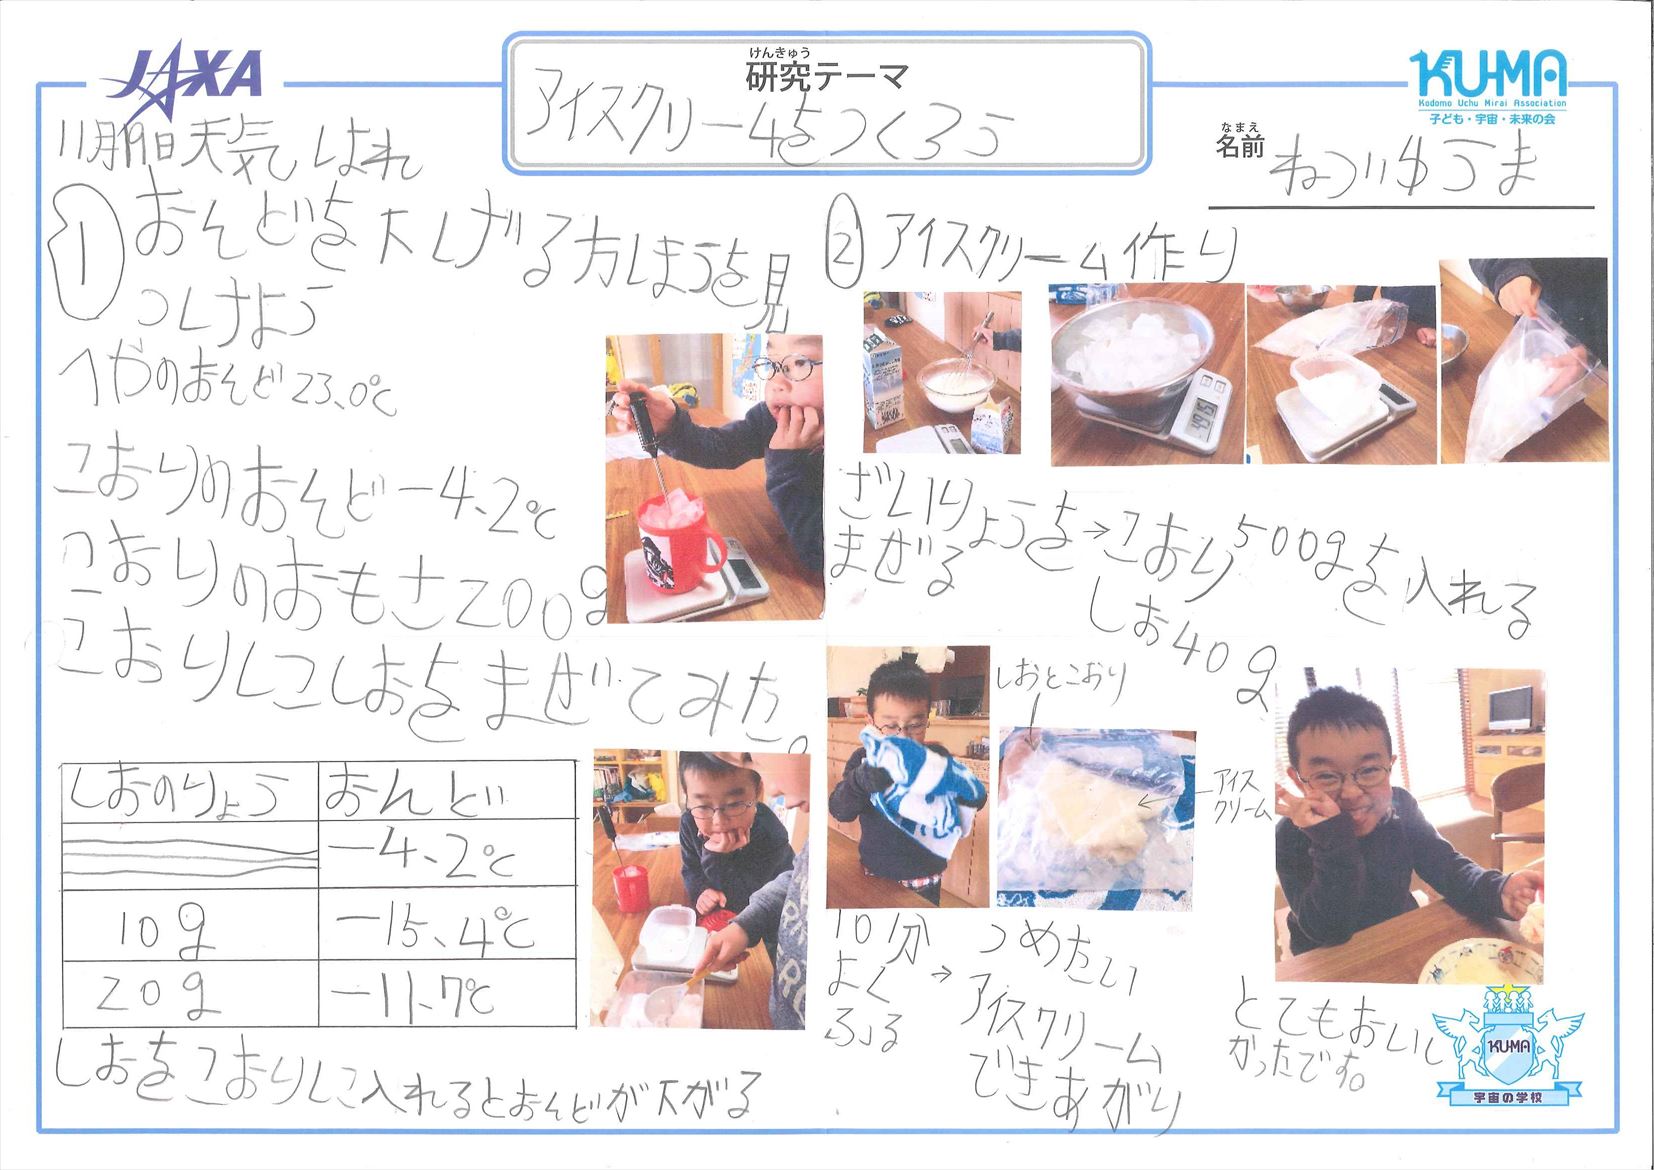 JAXA
けんきゅう
研究テーマ
アイスクリームをつくろう
KU-MA
Kodomo Uchu Mirai Association
子ども・宇宙・未来の会
なまえ
名前
11月19日天気はれ
① おんどを下げる方ほうを見
つけよう
へやのおんど23.0℃
こおりのおんど-4.2℃
こおりのおもさ200g
こおりにしおをまぜてみた。
しおのりょう おんど
-4.2℃
10g -15.4℃
20g -11.7℃
しおをこおりに入れるとおんどが下がる
② アイスクリーム作り
ざいりょうを→こおり500gを入れる
まぜる
しお40g
しおとこおり
アイス
クリーム
10分
よく
ふる
→
つめたい
アイスクリーム
できあがり
とてもおいし
かったです。
KUMA
宇宙の学校